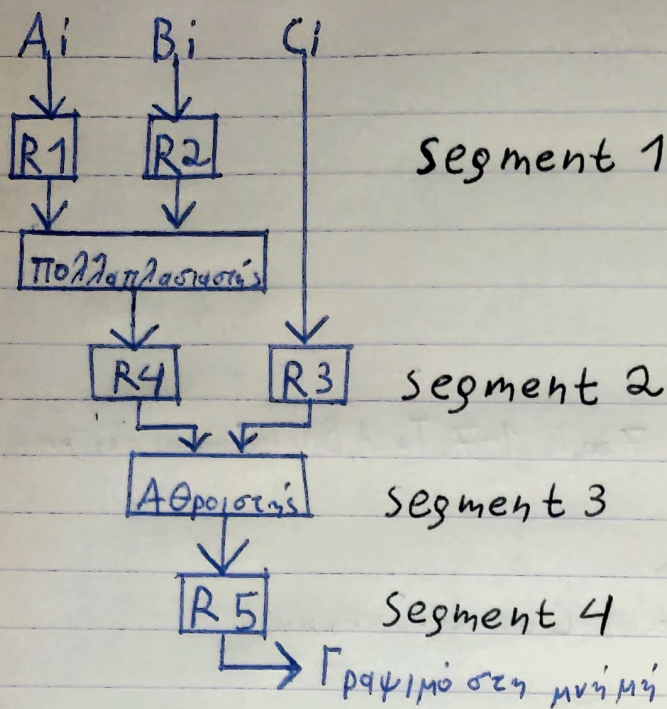 Ai Bi Ci
R1 R2 segment 1
Πολλαπλασιαστής
R4 R3 segment 2
Αθροιστής segment 3
R5 segment 4
Γραψιμό στη μνήμή